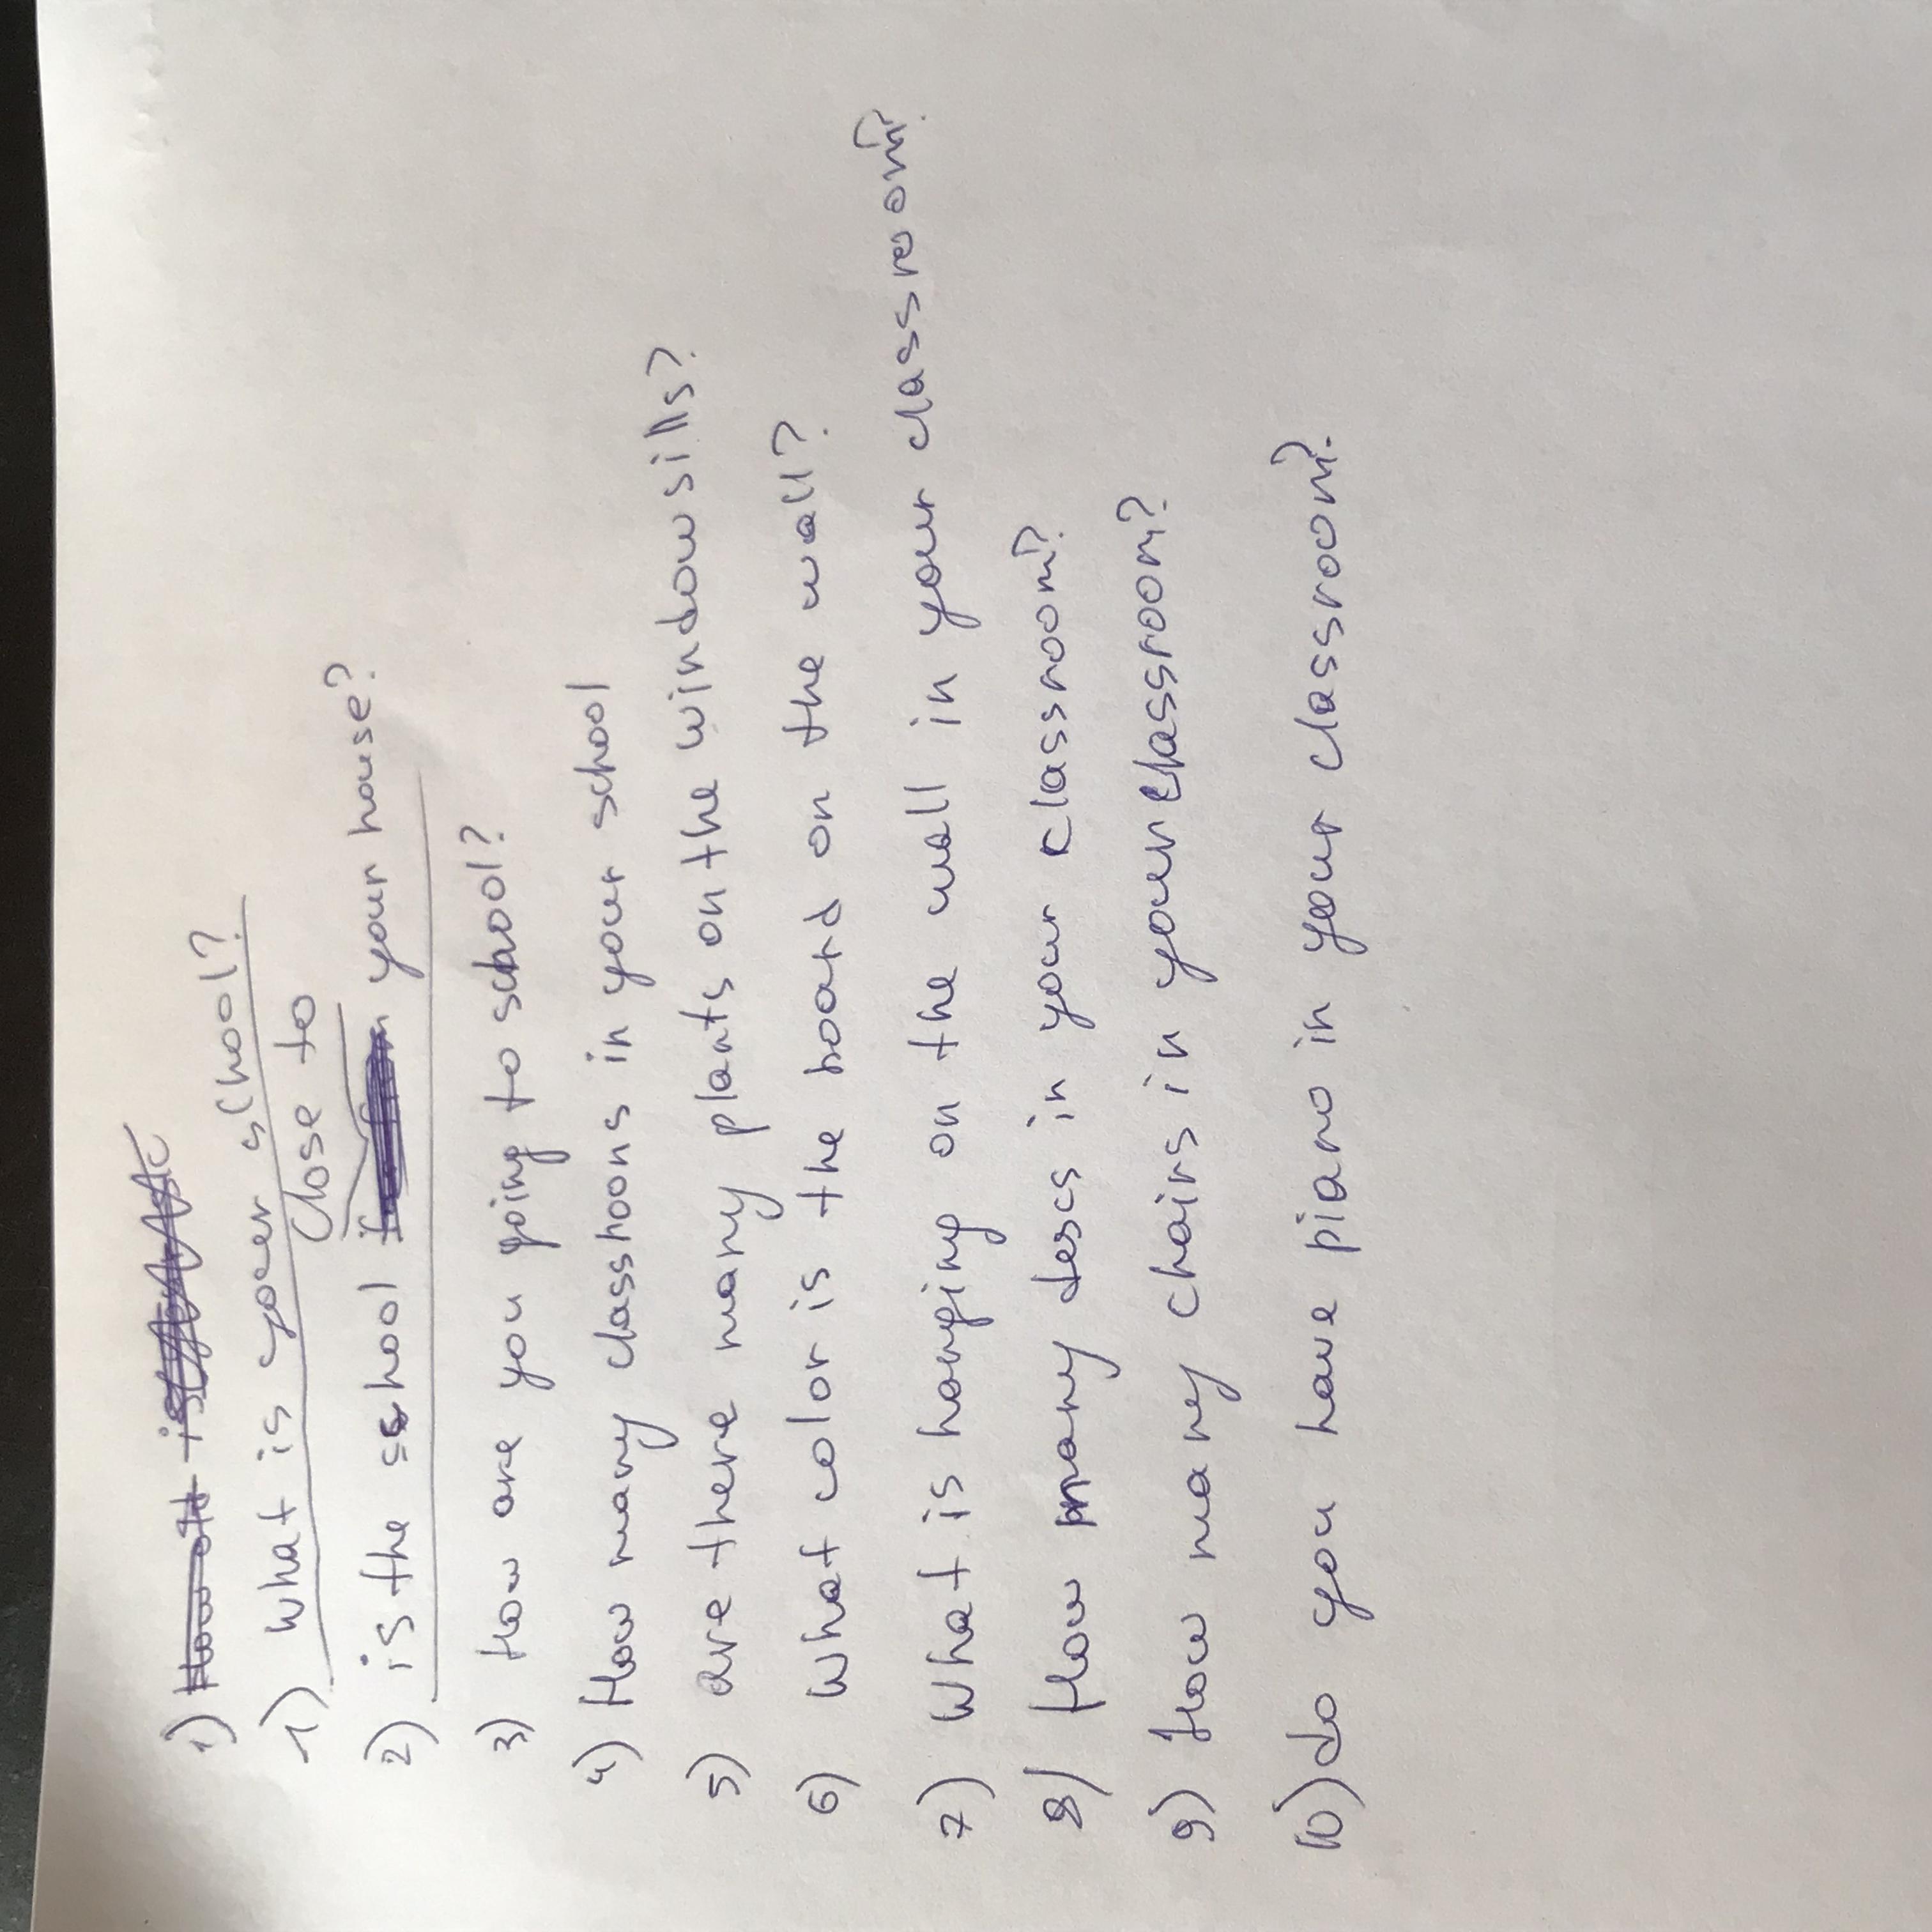 1)
1) What is youer school?
close to
2) is the school your house?
3) How are you going to school?
4) How many classhoons in your school
5) are there many plants on the windowsills?
6) What color is the board on the wall?
7) What is hanging on the wall in your classroom?
8) How many descs in your classroom?
9) How many chairs in your classroom?
10) do you have piano in your classroom?